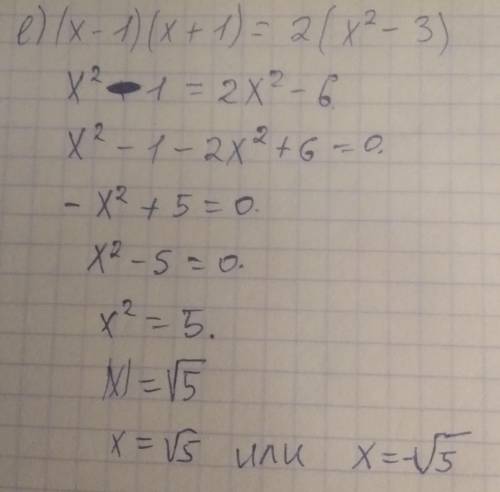 е) (x-1)(x+1) = 2(x² - 3)
x² - 1 = 2x² - 6
x² - 1 - 2x² + 6 = 0.
- x² + 5 = 0.
x² - 5 = 0.
x² = 5.
|x| = √5
x = √5 или x = -√5